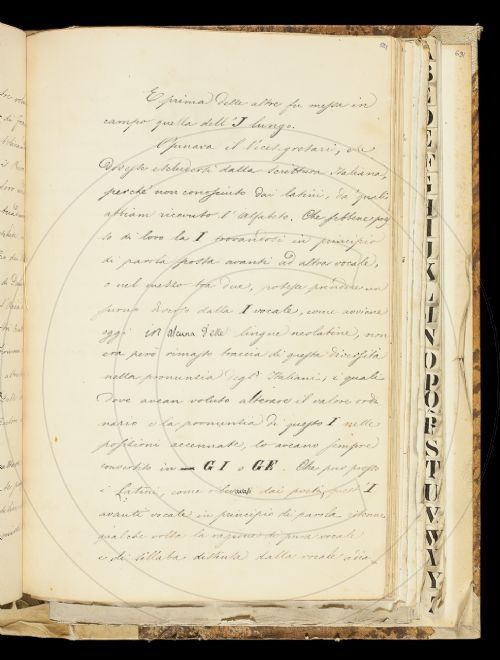 E prima delle altre fu messa in
campo quella dell'I lungo.
Opinava il Vicesegretario, che
dovesse escludersi dalla scrittura Italiana,
perchè non conosciuto dai latini, da' quali
abbiam ricevuto l'alfabeto. Che sebbene pres
so di loro la I trovandosi in principio
di parola posta avanti ad altra vocale,
o nel mezzo tra due, potesse prendere un
suono diverso dalla I vocale, come avviene
oggi in alcuna delle lingue neolatine, non
era però rimasta traccia di questa diversità
nella pronunzia degl'Italiani, i quali
dove avean voluto alterare il valore ordi
nario e la pronunzia di questo I nelle
posizioni accennate, lo aveano sempre
convertito in GI o GE. Che pur presso
i Latini, come dai poeti, I
avanti vocale in principio di parola
qualche volta la ragione di pura vocale
e di sillaba distinta dalla vocale
A
B
C
D
E
F
G
H
I
J
K
L
M
N
O
P
Q
R
S
T
U
V
W
X
Y
Z